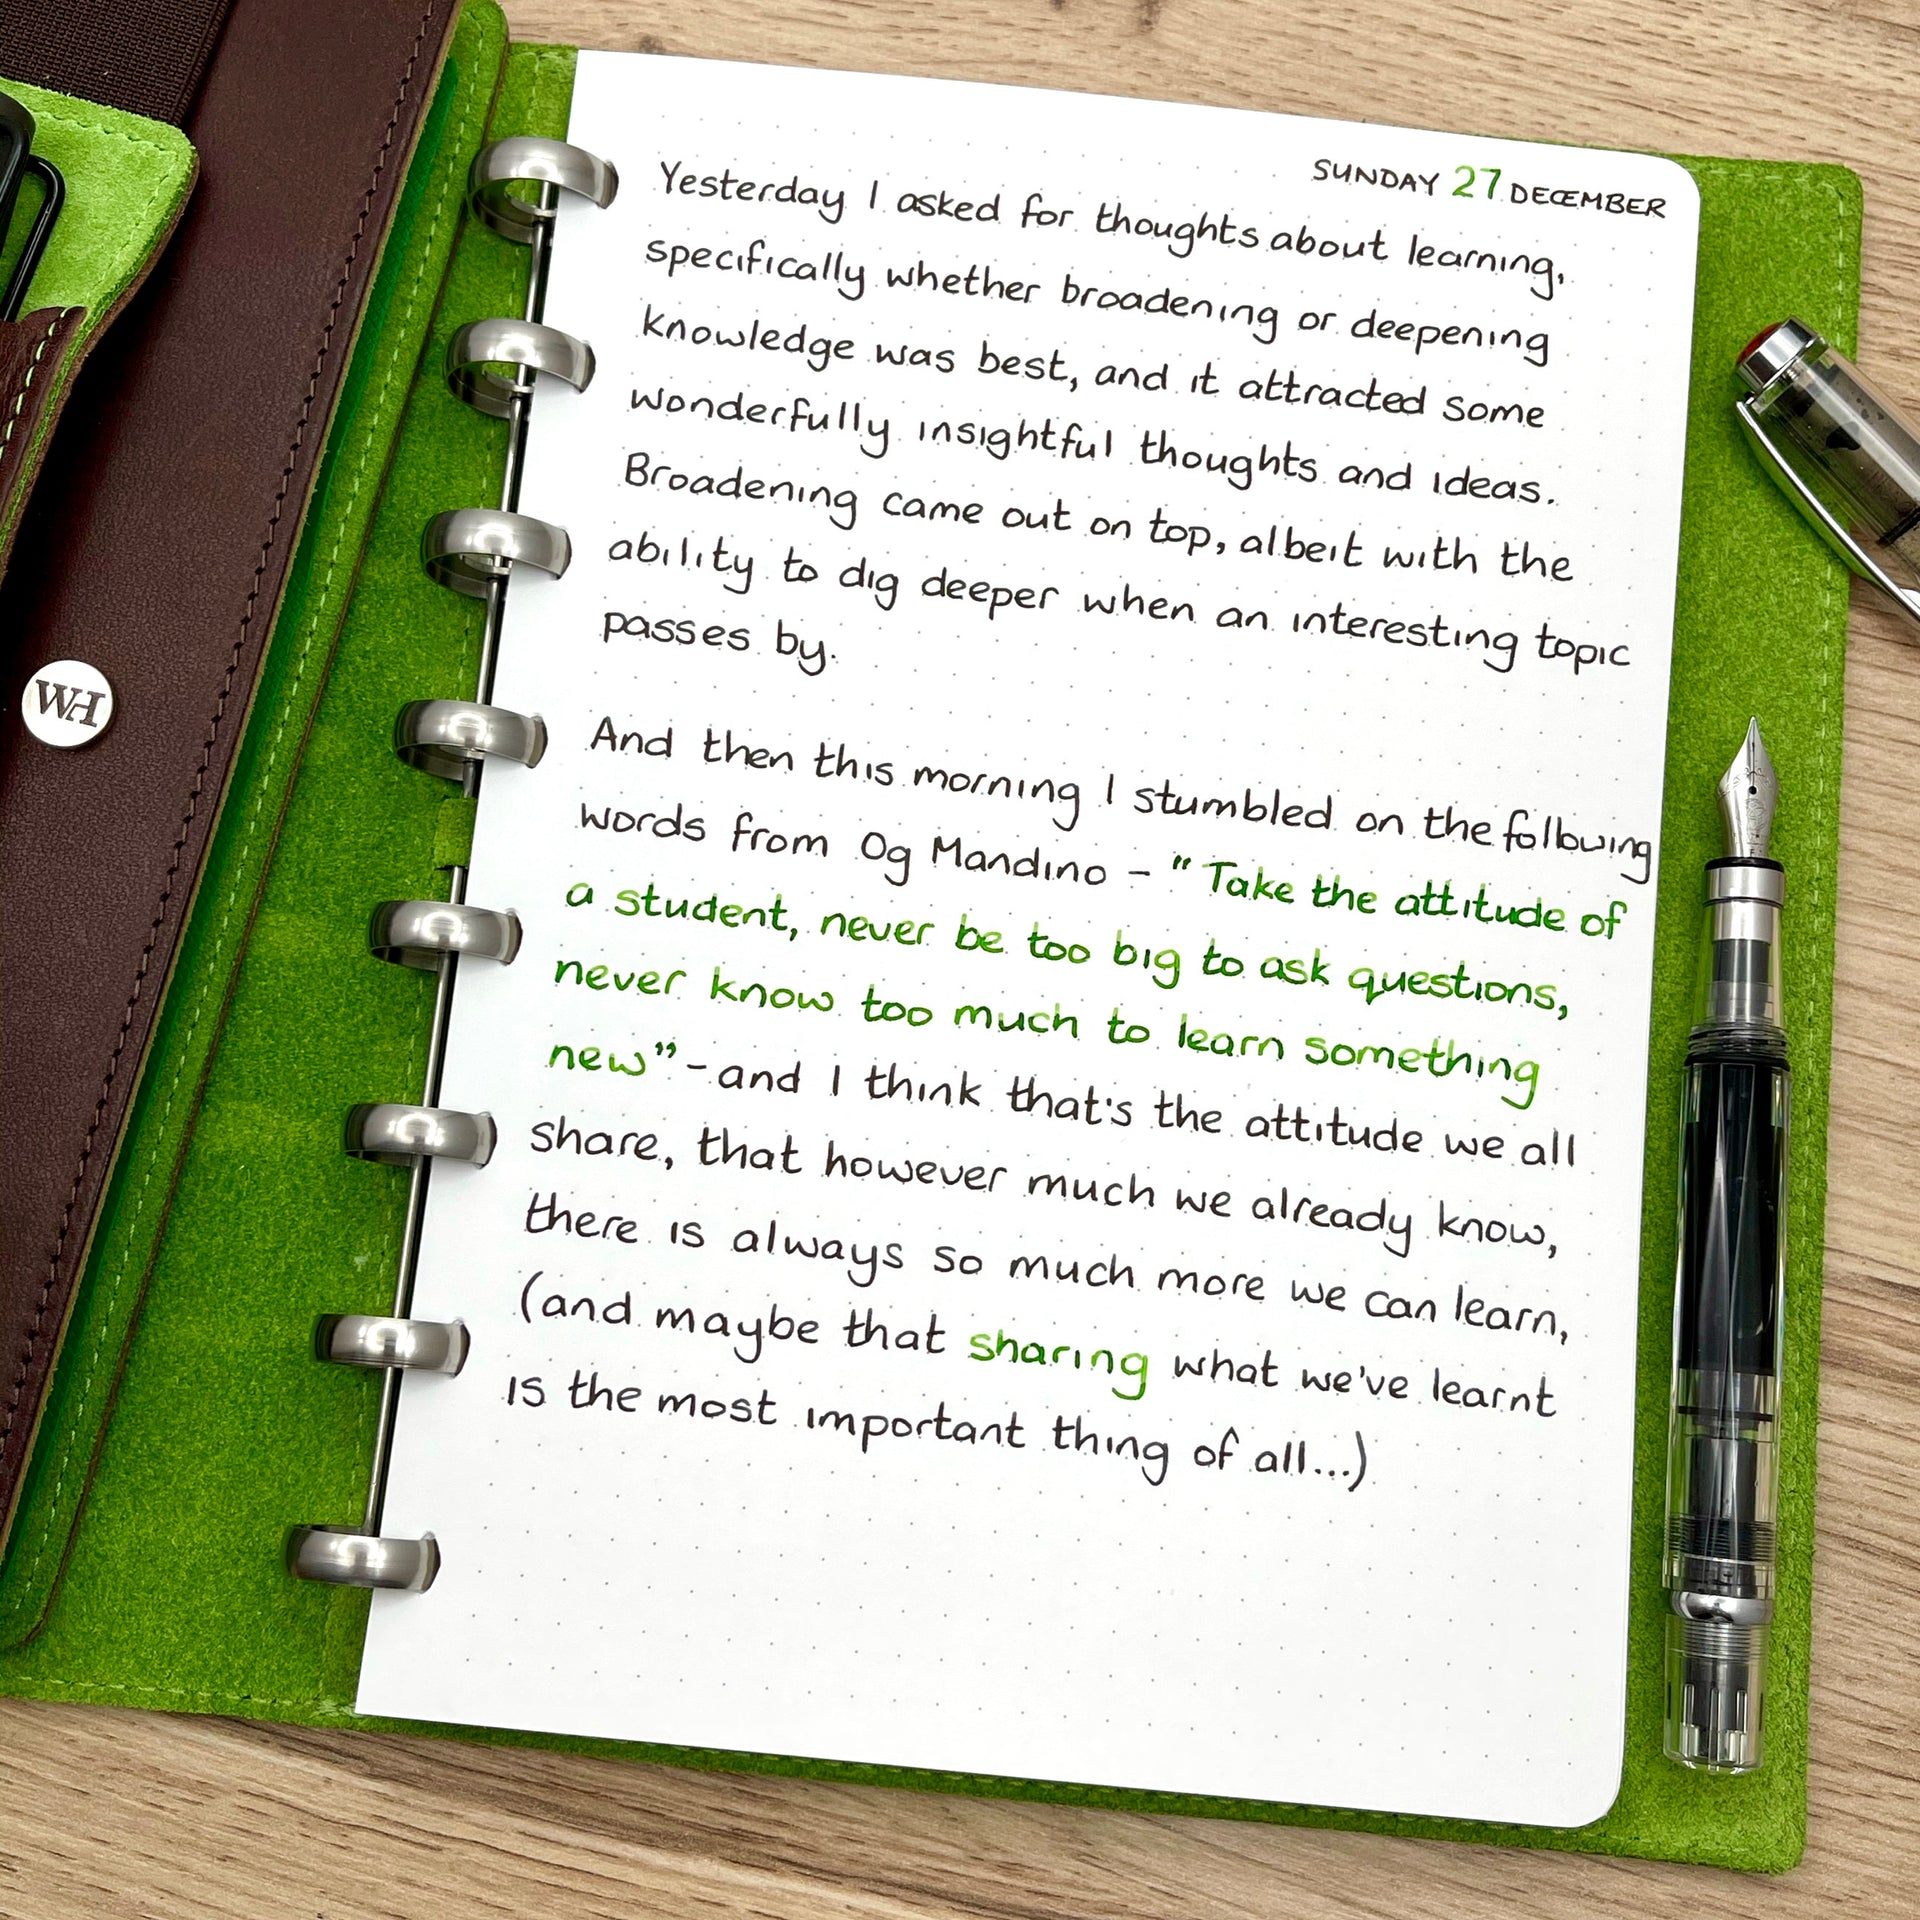 SUNDAY 27 DECEMBER
Yesterday I asked for thoughts about learning,
specifically whether broadening or deepening
knowledge was best, and it attracted some
wonderfully insightful thoughts and ideas.
Broadening came out on top, albeit with the
ability to dig deeper when an interesting topic
passes by.
And then this morning I stumbled on the following
words from Og Mandino - "Take the attitude of
a student, never be too big to ask questions,
never know too much to learn something
new" - and I think that's the attitude we all
share, that however much we already know,
there is always so much more we can learn,
(and maybe that sharing what we've learnt
is the most important thing of all...)
WH